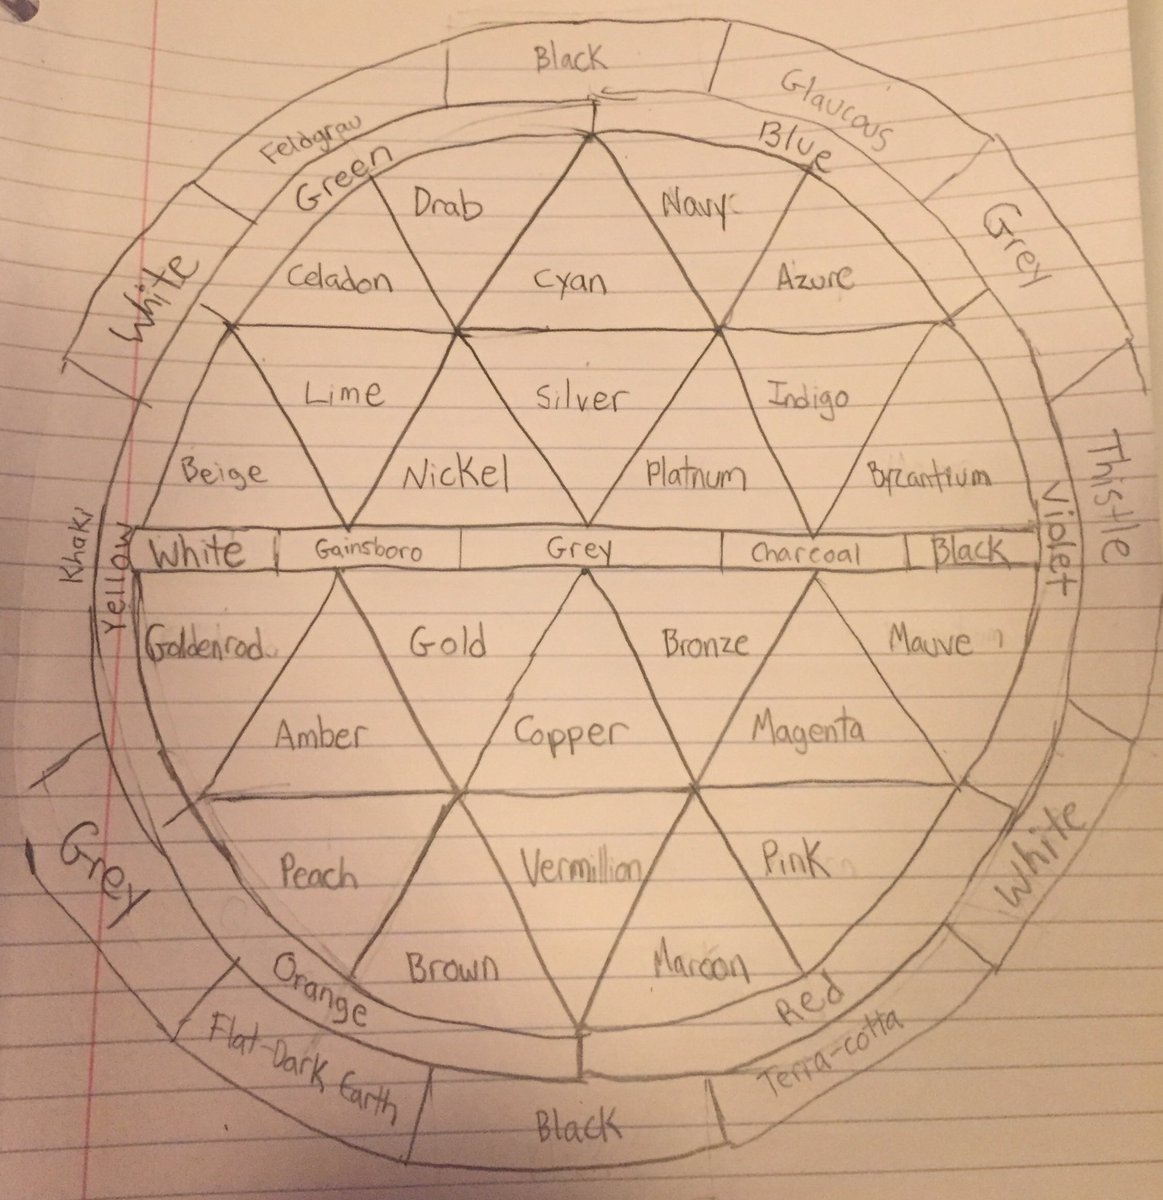 Black
Glaucous
Feldgrau
Blue
Green
Drab
Navy
Grey
White
Celadon
Cyan
Azure
Lime
Silver
Indigo
Beige
Nickel
Platnum
Byzantium
Thistle
Khaki
Yellow
White
Gainsboro
Grey
Charcoal
Black
Violet
Goldenrod
Gold
Bronze
Mauve
Amber
Copper
Magenta
Grey
Peach
Vermillion
Pink
White
Brown
Maroon
Orange
Red
Flat-Dark Earth
Terra-cotta
Black